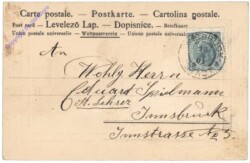 Carte postale. - Postkarte. - Cartolina postale.
Post card - Levelező Lap. - Dopisnice. - Briefkaart
Union postale universelle - Weltpostverein - Unione postale universale
An
Wohlg. Herrn
Eduard Spielmann
M. Lehrer
Innsbruck
Innstrasse No 5.